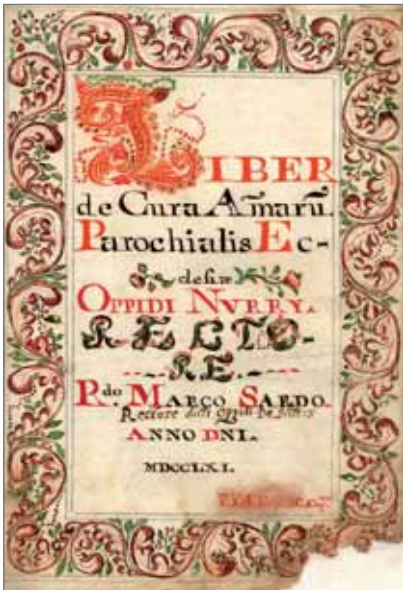 LIBER
de Cura Am̃arũ.
Parochialis Ec-
clesiæ
OPPIDI NVRRY.
RECTO-
RE.
R.do MARCO SARDO.
Rectore dicti Oppidi de
ANNO DNI.
MDCCLXI.